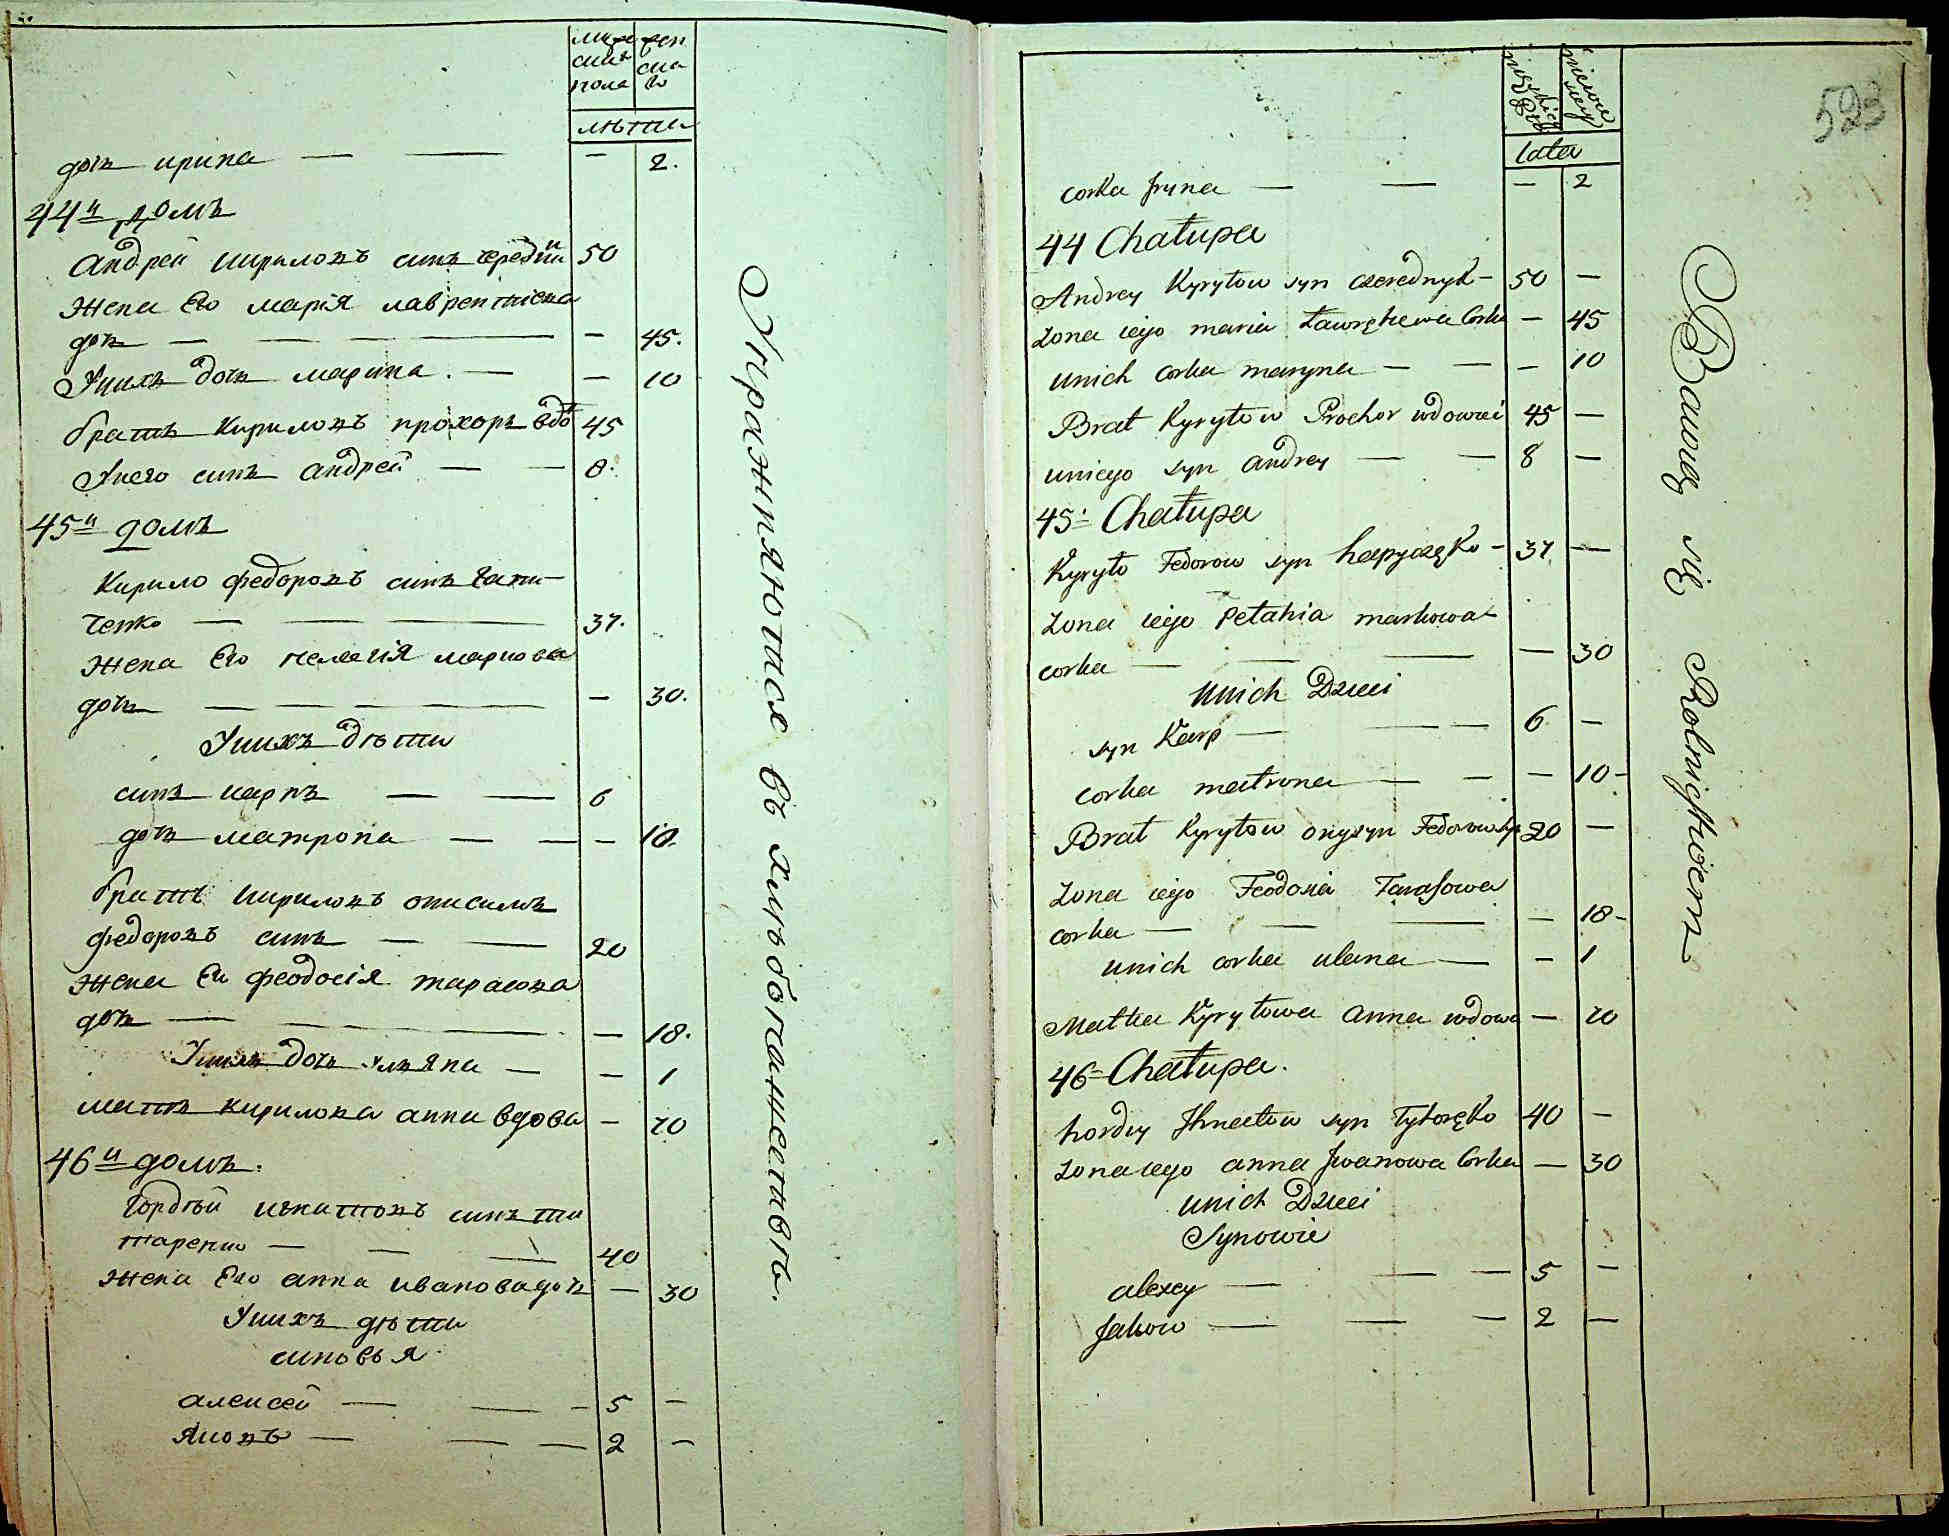 мужеска пола
женска го
лѣты
дочь ирина — — — 2.
44й домъ
Андрей кириловъ синъ чередни 50
жена Его марія лаврентиева
дочь — — — — 45.
У нихъ дочь марина . — — 10
братъ кириловъ прохоръ вдо 45
У него синъ андрей — — 8.
45й домъ
Кирило федоровъ синъ Гапи-
ченко — — — 37.
жена Его пелагія маркова
дочь — — — — — 30.
У нихъ дѣти
синъ карпъ — — 6
дочь матрона — — — 10.
братъ кириловъ онисимъ
федоровъ синъ — — 20
жена Ею феодосія тарасова
дочь — — — — 18.
У нихъ дочь уляна — — 1
мать кирилова анна вдова — 70
46й домъ.
Гордѣй игнатовъ синъ ти
таренко — — — 40
жена Его анна иванова дочь — 30
У нихъ дѣти
синовья
алексей — — — 5 —
яковъ — — — 2 —
Упражняются въ хлѣбопашествѣ.
523
lata
corka Jryna — — — 2
44 Chałupa
Andrey Kyryłow syn czerednyk — 50 —
żona iego maria Ławrętiewa Corka — 45
unich corka maryna — — — 10
Brat Kyryłow Prochor wdowiec 45 —
uniego syn andrey — — 8 —
45. Chałupa
Kyryło Fedorow syn hapyczęko — 37 —
żona iego Pełahia markowa
corka — — — — 30
unich Dzieci
syn Karp — — — 6 —
corka matrona — — — 10 -
Brat Kyryłow onysym Fedorow syn 20 —
żona iego Feodosia Tarasowa
corka — — — — 18 -
unich corka ulana — — 1
Matka Kyryłowa anna wdowa — 70
46 Chałupa.
hordiy Jhnatow syn Tytoręko 40 —
żona iego anna Jwanowa Corka — 30
unich Dzieci
Synowie
alexey — — — 5 —
Jakow — — — 2 —
Bawią się Rolnictwem